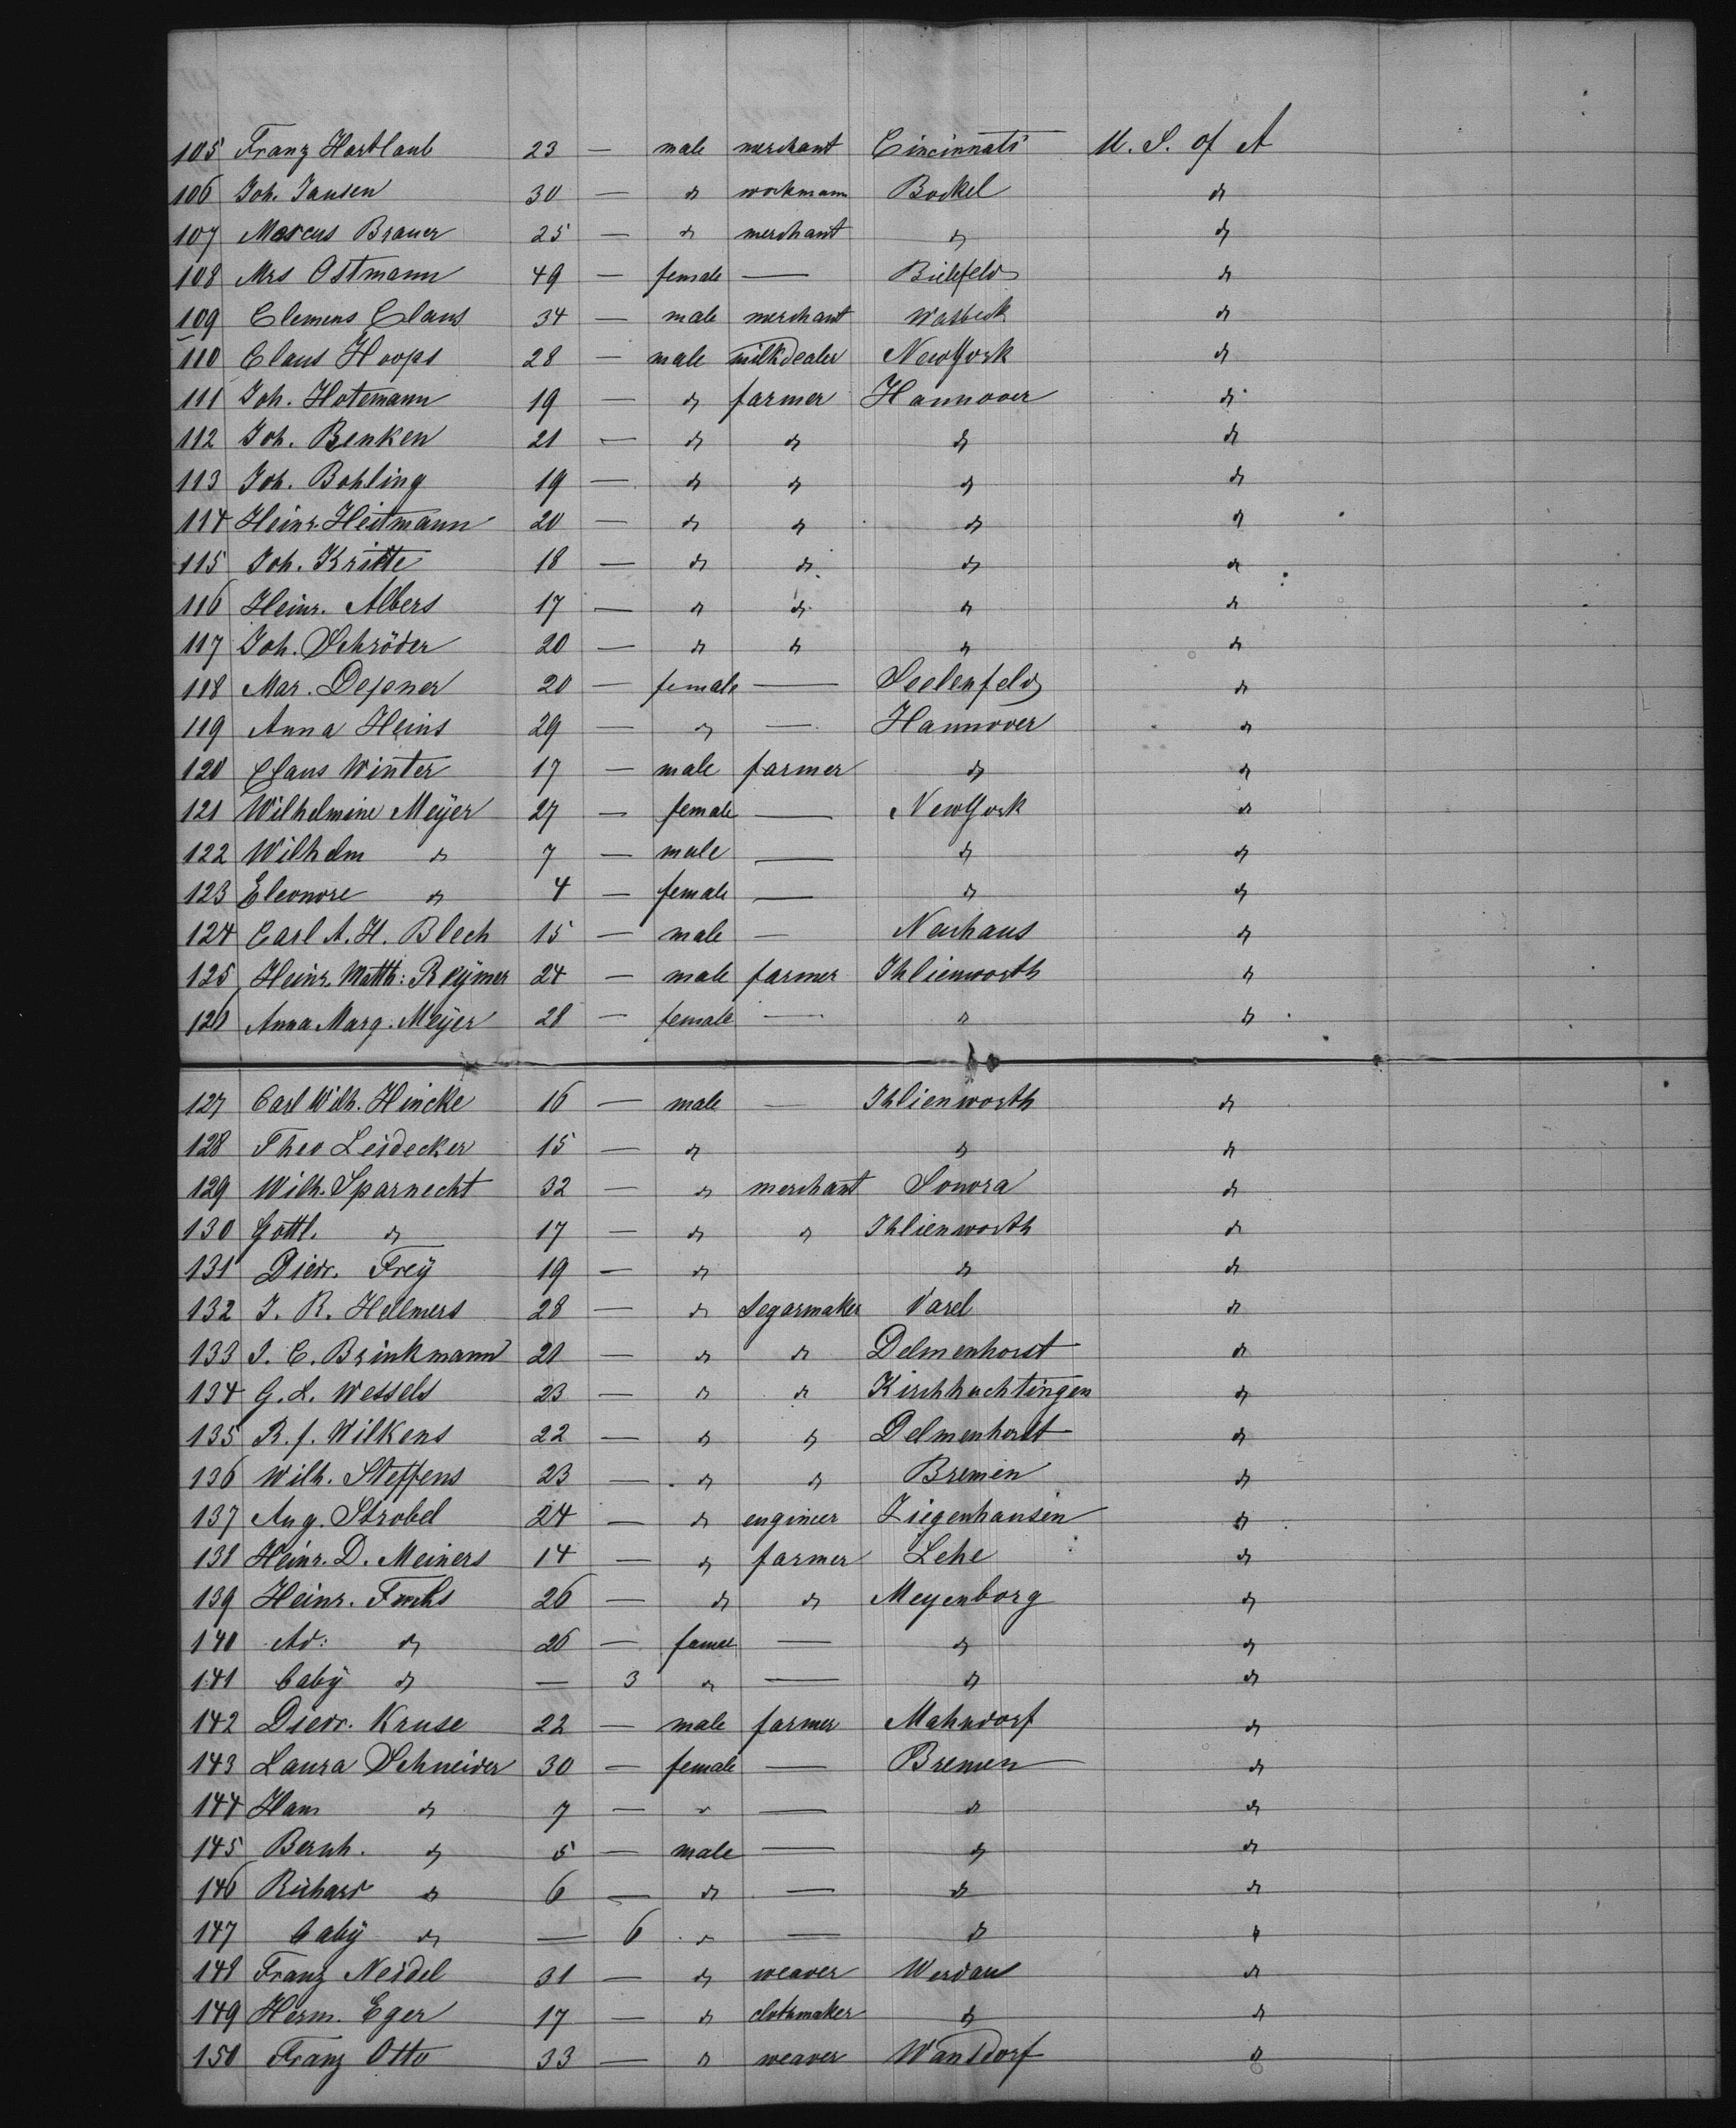 105 Franz Hartlaub 23 — male merchant Cincinnati U. S. of A
106 Joh. Jansen 30 — do workmann Bockel do
107 Marcus Brauer 25 — do merchant do do
108 Mrs Ostmann 49 — female — Bielefeld do
109 Clemens Claus 34 — male merchant do
110 Claus Hoops 28 — male milkdealer NewYork do
111 Joh. Hotemann 19 — do farmer Hannover do
112 Joh. Benken 21 — do do do do
113 Joh. Bohling 19 — do do do do
114 Heinr. Heitmann 20 — do do do do
115 Joh. Kritte 18 — do do do do
116 Heinr. Albers 17 — do do do do
117 Joh. Schröder 20 — do do do do
118 Mar. 20 — female — Seelenfeld do
119 Anna Heins 29 — do — Hannover do
120 Claus Winter 17 — male farmer do do
121 Wilhelmine Meÿer 27 — female — NewYork do
122 Wilhelm do 7 — male — do do
123 Eleonore do 4 — female — do do
124 Carl A. H. Blech 15 — male — Neuhaus do
125 Heinr. Matth: Reÿmer 24 — male farmer Ihlienworth do
126 Anna Marg. Meÿer 28 — female — do do
127 Carl Wilh. Hincke 16 — male — Ihlienworth do
128 Theo Leidecker 15 — do do do
129 Wilh. Sparnecht 32 — do merchant Sonora do
130 Gottl. do 17 — do do Ihlienworth do
131 Diedr. Freÿ 19 — do do do
132 J. R. Hellmers 28 — do Segarmaker Varel do
133 J. C. Brinkmann 21 — do do Delmenhorst do
134 G. L. Wessels 23 — do do Kirchhuchtingen do
135 R. f. Wilkens 22 — do do Delmenhorst do
136 Wilh. Steffens 23 — do do Bremen do
137 Aug. Strobel 24 — do engineer Ziegenhausen do
138 Heinr. D. Meiners 14 — do farmer Lehe do
139 Heinr. 26 — do do Meyenborg do
140 Ad: do 26 — — do do
141 baby do — 3 do — do do
142 Diedr. Kruse 22 — male farmer Mahndorf do
143 Laura Schneider 30 — female — Bremen do
144 do 7 — do — do do
145 Bernh. do 5 — male — do do
146 Richard do 6 — do — do do
147 baby do — 6 do — do do
148 Franz Neidel 31 — do weaver Werdau do
149 Herm. Eger 17 — do clothmaker do do
150 Franz Otto 33 — do weaver do